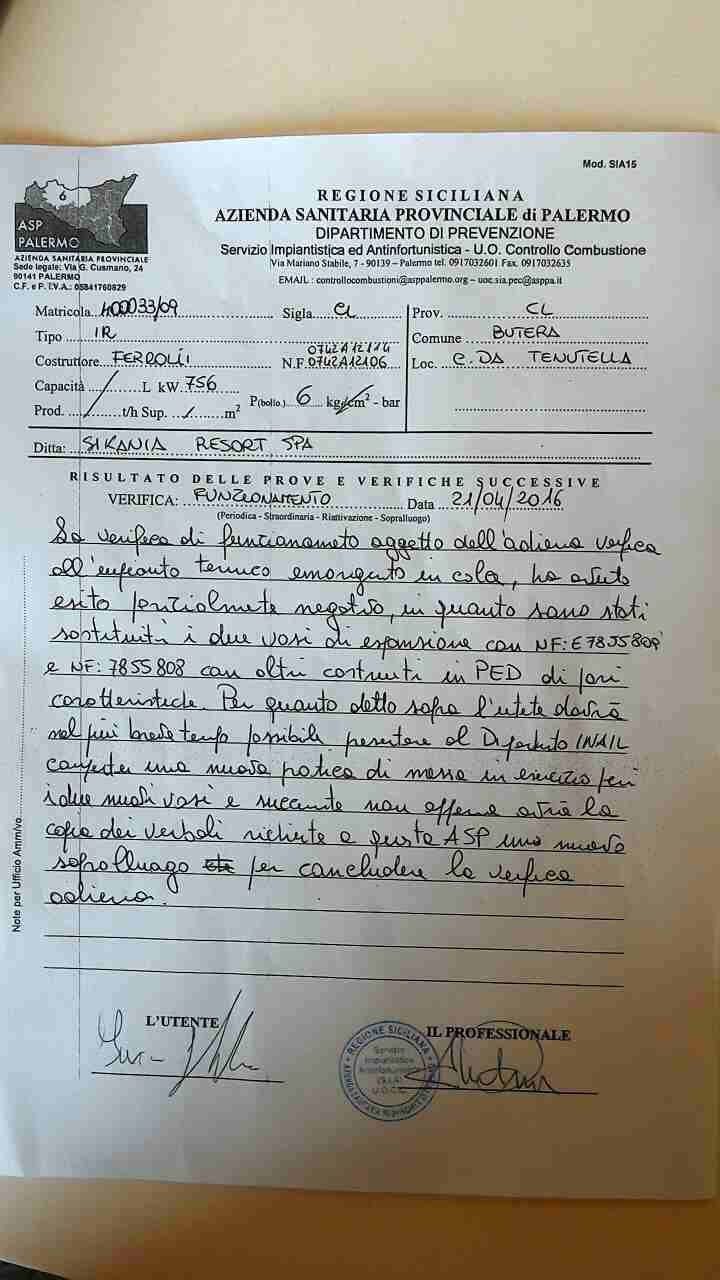 Mod. SIA15
6
ASP
PALERMO
AZIENDA SANITARIA PROVINCIALE
Sede legale: Via G. Cusmano, 24
90141 PALERMO
C.F. e P. I.V.A.: 05841760829
REGIONE SICILIANA
AZIENDA SANITARIA PROVINCIALE di PALERMO
DIPARTIMENTO DI PREVENZIONE
Servizio Impiantistica ed Antinfortunistica - U.O. Controllo Combustione
Via Mariano Stabile, 7 - 90139 – Palermo tel. 0917032601 Fax. 0917032635
EMAIL : controllocombustioni@asppalermo.org – uoc.sia.pec@asppa.it
Matricola 400033/09 Sigla CL
Tipo IR
0742A12114
Costruttore FERROLI N.F. 0742A12106
Capacità / L kW. 756
P(bollo.) 6 kg/cm² - bar
Prod. / t/h Sup. / m²
Prov. CL
Comune BUTERA
Loc. C.DA TENUTELLA
Ditta: SIKANIA RESORT SPA
RISULTATO DELLE PROVE E VERIFICHE SUCCESSIVE
VERIFICA: FUNZIONAMENTO Data 21/04/2016
(Periodica - Straordinaria - Riattivazione - Sopralluogo)
La verifica di funzionameto oggetto dell'odierna verifica
all'impianto termico emarginato in cola, ha avuto
esito parzialmente negativo, in quanto sono stati
sostituiti i due vasi di espansione con NF: E7855809
e NF: 7855808 con altri costruiti in PED di pari
caratteristiche. Per quanto detto sopra l'utete dovrà
nel più breve tempo possibile presentare al Dipartimento INAIL
una nuova pratica di messa in esercizio per
i due nuovi vasi e non appena avrà la
copia dei verbali a questa ASP uno nuovo
sopralluogo per concludere la verifica
odierna.
Note per Ufficio Amm/vo
L'UTENTE
IL PROFESSIONALE
REGIONE SICILIANA
Servizio
Impiantistica
Antinfortunistica